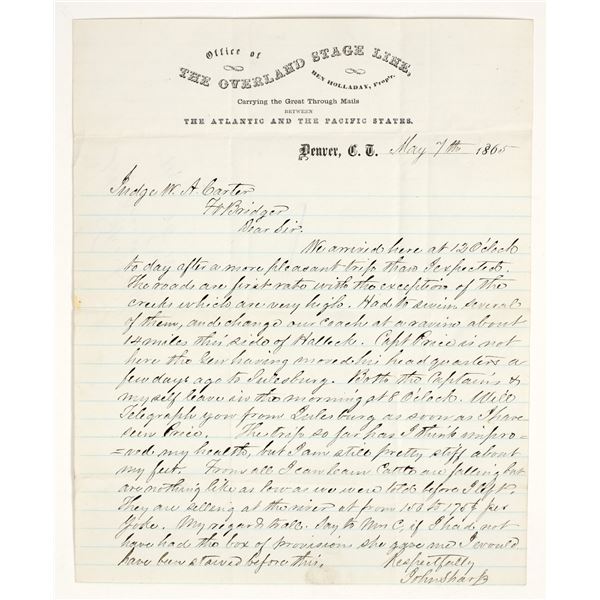 Office of
THE OVERLAND STAGE LINE,
BEN HOLLADAY, Prop'r.
Carrying the Great Through Mails
BETWEEN
THE ATLANTIC AND THE PACIFIC STATES.
Denver, C. T. May 7th 1865
Judge W. A. Carter
Ft Bridger
Dear Sir.
We arrived here at 12 O'clock
to day after a more pleasant trip than I expected.
The roads are first rate with the exception of the
creeks which are very high. Had to swim several
of them, and change our coach at a ravine about
14 miles this side of Halleck. Capt Price is not
here the Gen having moved his headquarters a
few days ago to Julesburg. Both the Captains &
myself leave in the morning at 8 O'clock. Will
Telegraph you from Julesburg as soon as I have
seen Price. The trip so far has I think impro-
=ved my health, but I am still pretty stiff about
my feet. From all I can learn Cattle are falling but
are nothing like as low as we were told before I left.
They are selling at the river at from 150 to 175$ per
Yoke. My regards to all. Say to Mrs C, if I had not
have had the box of provisions she gave me I would
have been starved before this.
Respectfully
John Sharp